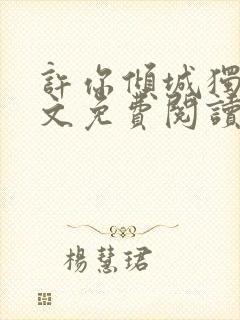 許你傾城獨
文免費閱讀
楊慧珺